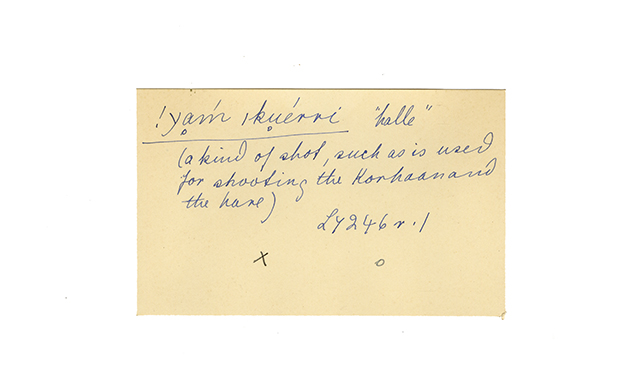 !yạḿ ıkụérri "halle"
(a kind of shot, such as is used
for shooting the Korhaan and
the hare)
LY246 r.1
x o